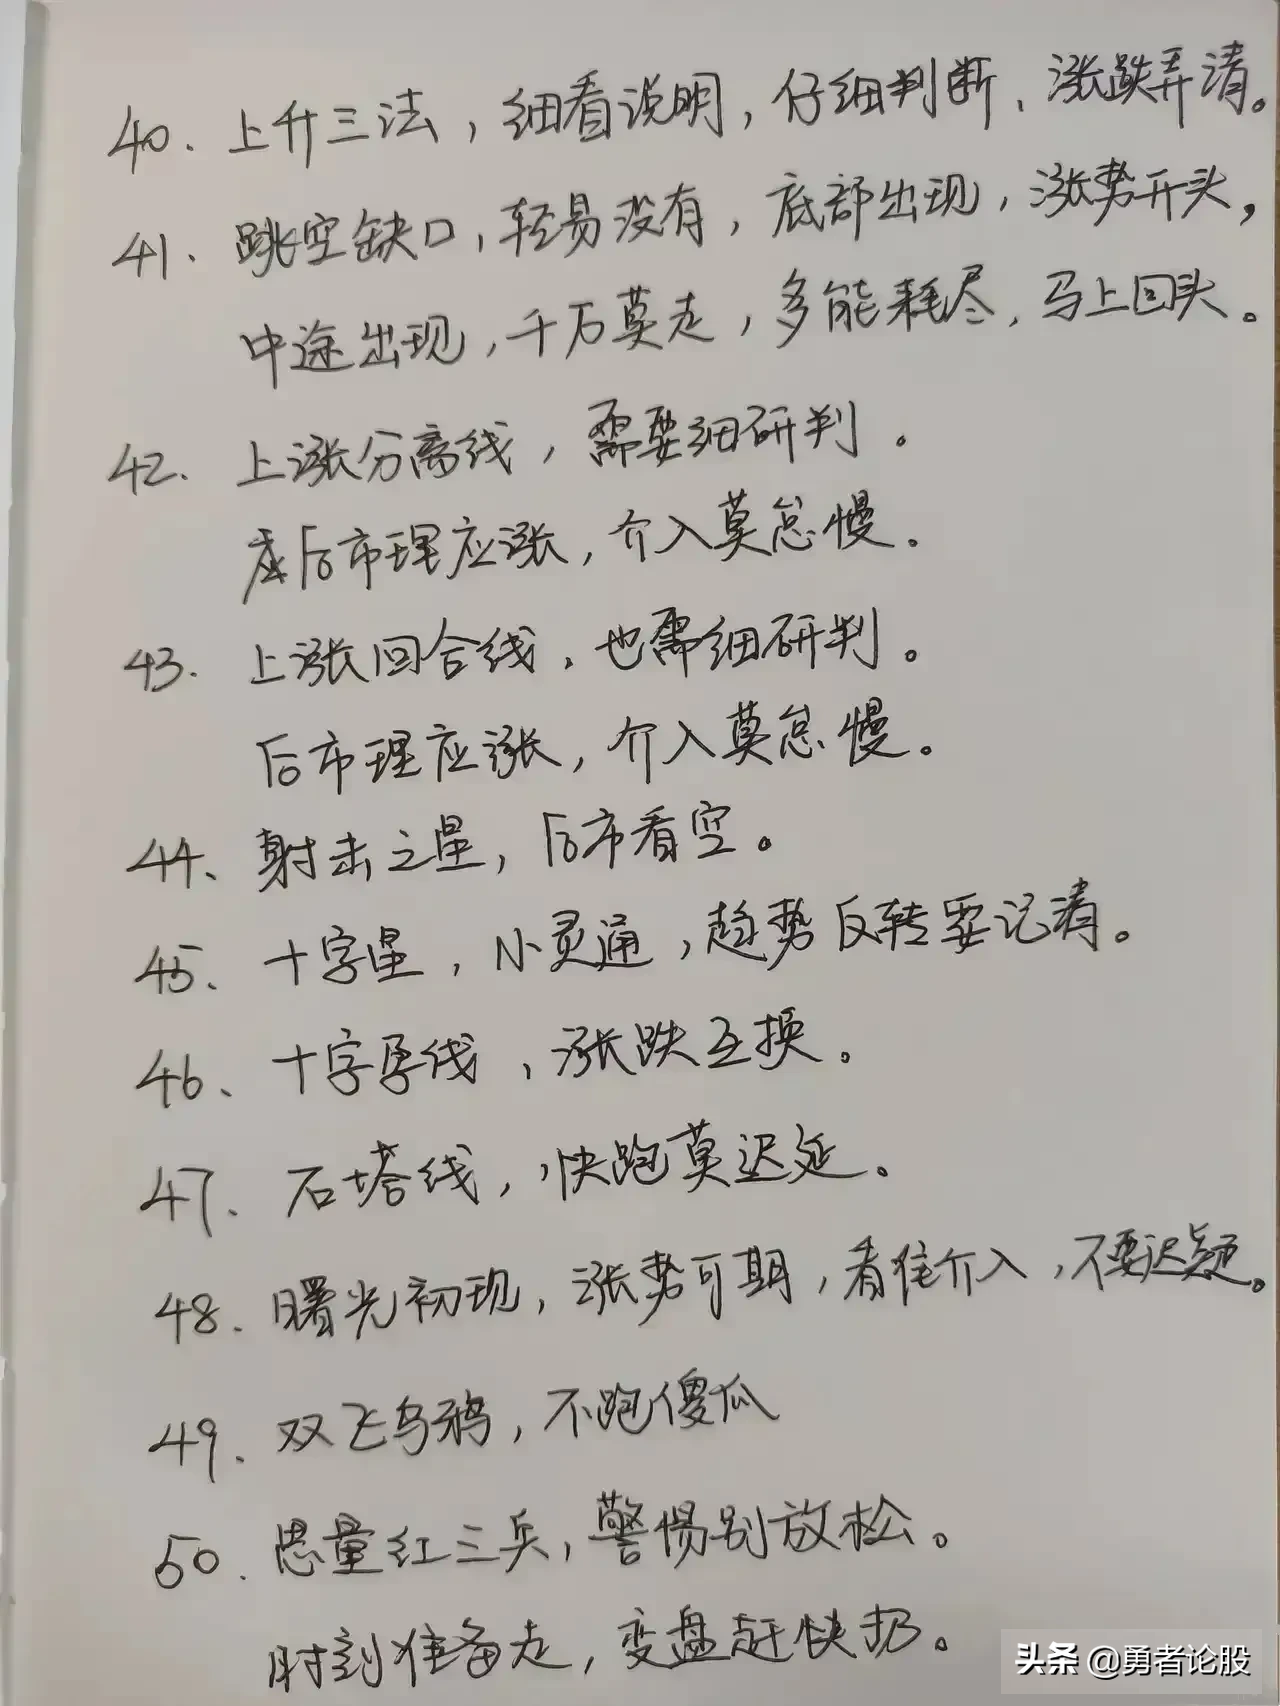 40. 上升三法，细看说明，仔细判断、涨跌弄清。
41. 跳空缺口，轻易没有，底部出现，涨势开头，
中途出现，千万莫走，多能耗尽，马上回头。
42. 上涨分离线，需要细研判。
后市理应涨，介入莫怠慢。
43. 上涨回合线，也需细研判。
后市理应涨，介入莫怠慢。
44、射击之星，后市看空。
45、十字星，小灵通，趋势反转要记清。
46、十字孕线，涨跌互换。
47. 石塔线，快跑莫迟延。
48. 曙光初现，涨势可期，看准介入，不要迟疑。
49. 双飞乌鸦，不跑傻瓜
50. 思量红三兵，警惕别放松。
时刻准备走，变盘赶快扔。
头条 @勇者论股